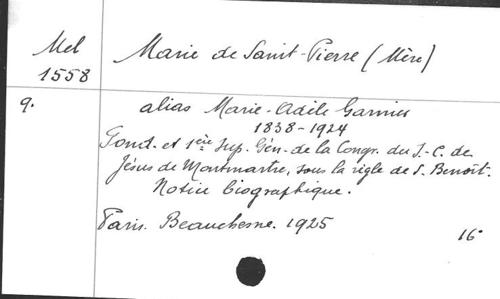 Mel
1558
Marie de Saint-Pierre (Mère)
9.
alias Marie-Adèle Garnier
1838-1924
Fond. et 1ère Sup. Gén. de la Congr. du S.-C. de
Jésus de Montmartre, sous la règle de S. Benoît.
Notice biographique.
Paris. Beauchesne. 1925
16°